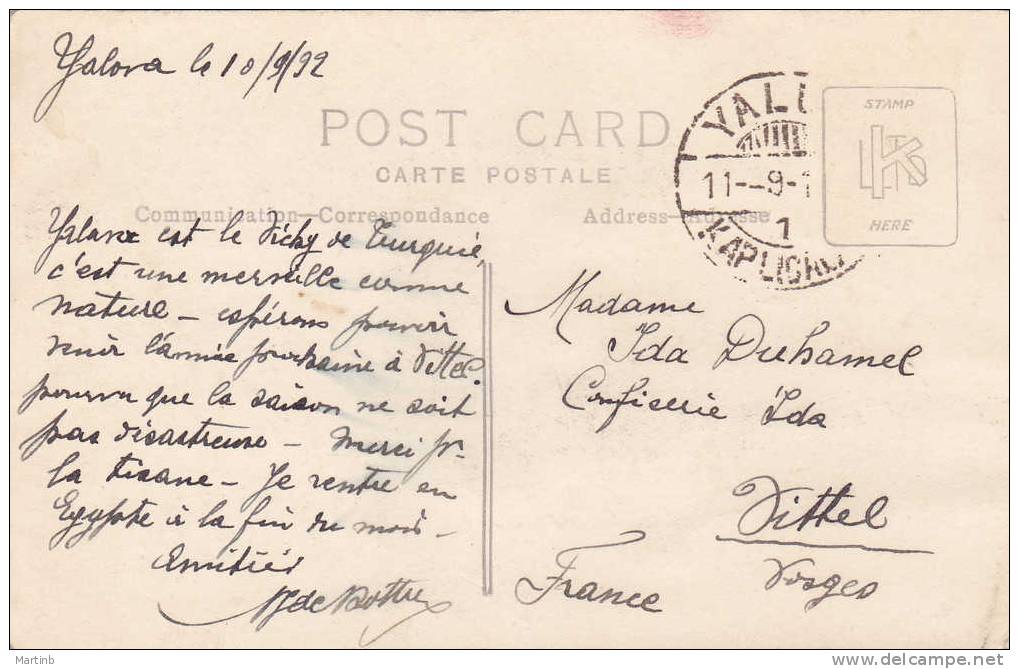 Yalova le 10/9/32
POST CARD
CARTE POSTALE
Communication—Correspondance
Address—Adresse
STAMP
HERE
YAL
11--9-1
1
KAPLICA
Yalova est le Vichy de Turquie,
c'est une merveille comme
nature — espérons pouvoir
venir l'année prochaine à Vittel.
pourvu que la saison ne soit
pas désastreuse — Merci pr
la tisane — Je rentre en
Egypte à la fin du mois —
Amitiés
Madame
Ida Duhamel
Confiserie Ida
Vittel
Vosges
France
Martinb
www.delcampe.net